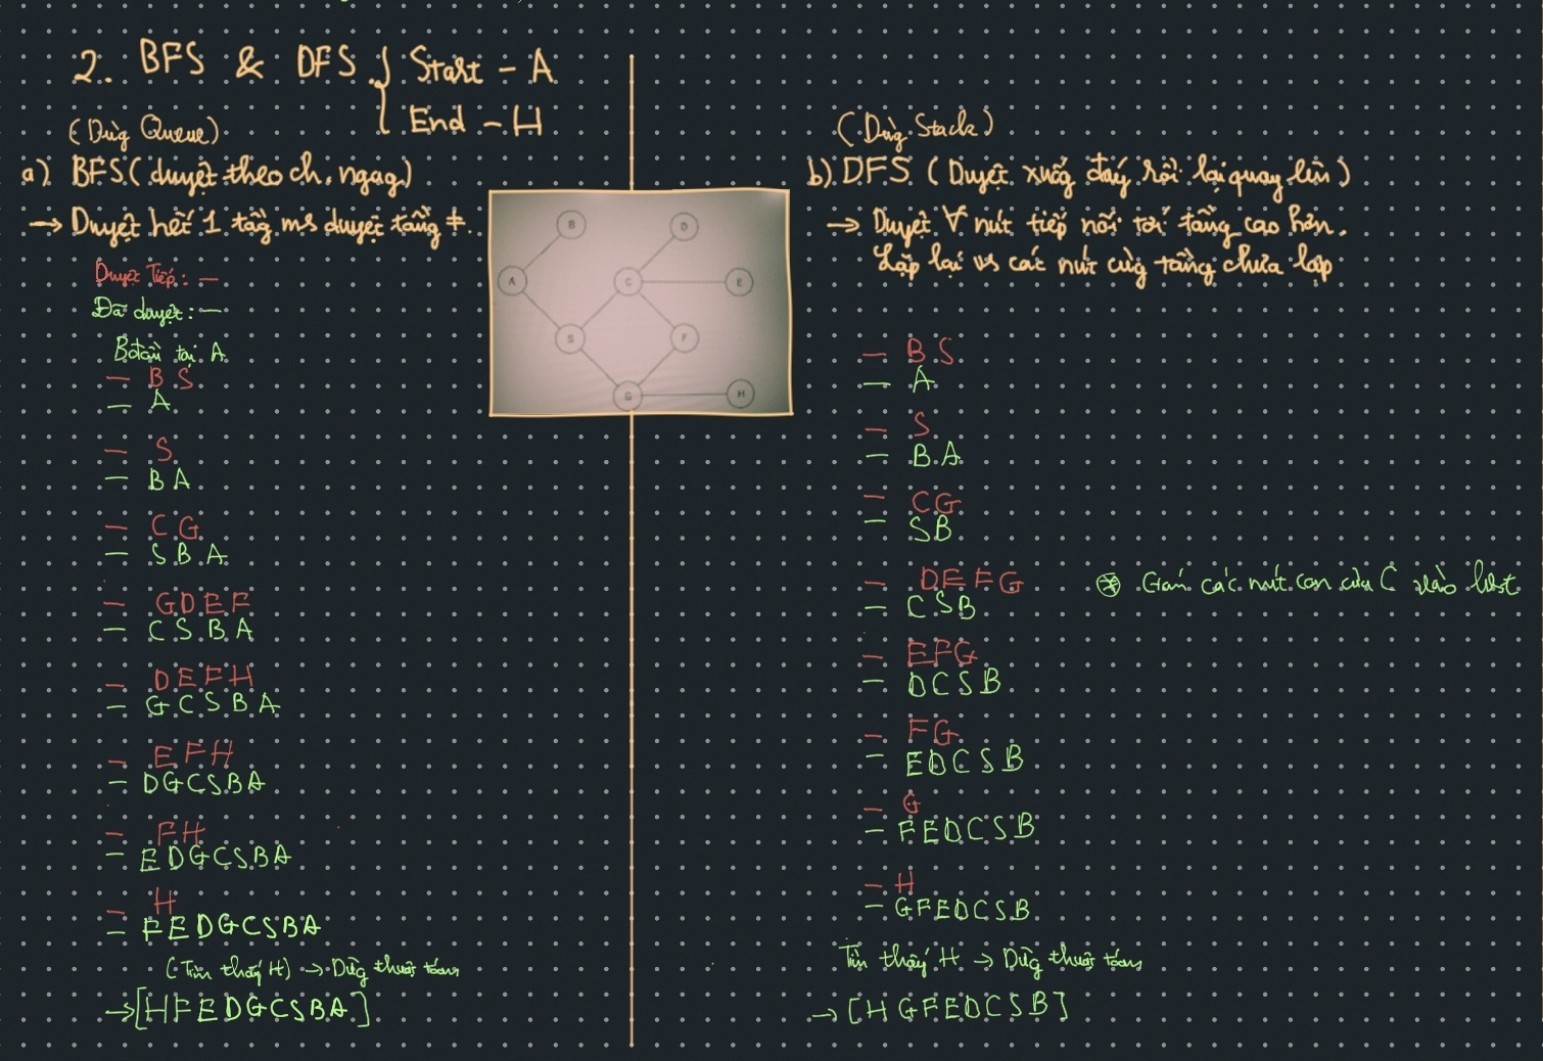 2. BFS & DFS { Start - A
End - H
(Dùg Queue)
a) BFS (duyệt theo ch. ngag)
→ Duyệt hết 1 tầg ms duyệt tầng ≠.
Duyệt Tiếp: —
Đã duyệt: —
Bắt đầu tại A
— B S
— A
— S
— B A
— C G
— S B A
— G D E F
— C S B A
— D E F H
— G C S B A
— E F H
— D G C S B A
— F H
— E D G C S B A
— H
— F E D G C S B A
(Tìm thấy H) → Dừg thuật toán
→ [H F E D G C S B A]
B
D
A
C
E
S
F
G
H
(Dùg Stack)
b) DFS (Duyệt xuốg đáy rồi lại quay lên)
→ Duyệt ∀ nút tiếp nối tới tầng cao hơn.
Lặp lại vs các nút cùg tầng chưa lặp
— B S
— A
— S
— B A
— C G
— S B
— D E F G
— C S B
⊛ Gán các nút con của C vào list
— E F G
— D C S B
— F G
— E D C S B
— G
— F E D C S B
— H
— G F E D C S B
Tìm thấy H → Dừg thuật toán
→ [H G F E D C S B]